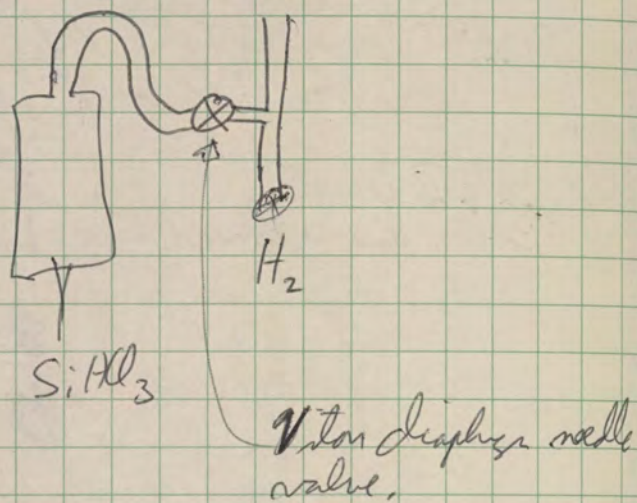 H₂
SiHCl₃
Viton diaphragm needle
valve.